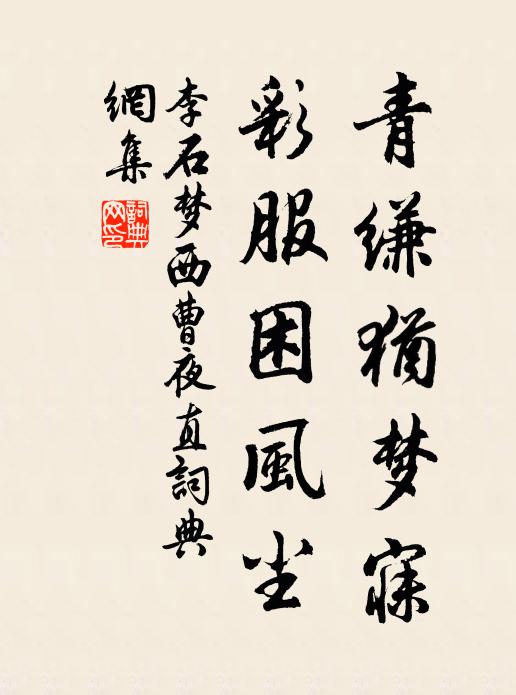 青縑猶梦寐
彩服困風尘
李石梦西曹夜直詞典
網集
詞典
网印